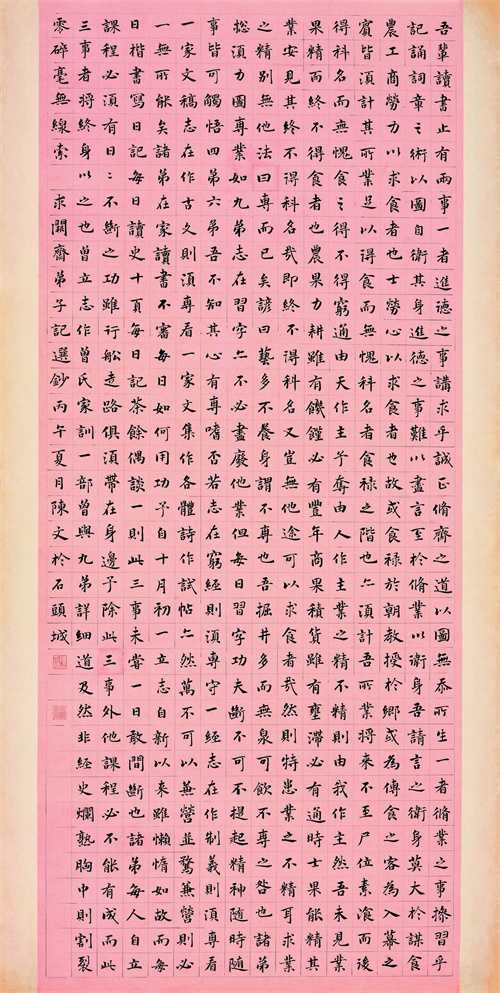 吾輩讀書止有兩事一者進德之事講求乎誠正脩齊之道以圖無忝所生一者脩業之事操習乎
記誦詞章之術以圖自衛其身進德之事難以盡言至於脩業以衛身吾請言之衛身莫大於謀食
農工商勞力以求食者也士勞心以求食者也故或食祿於朝教授於鄉或為傳食之客為入幕之
賓皆須計其所業足以得食而無愧科名者食祿之階也亦須計吾所業將來不至尸位素湌而後
得科名而無愧食之得不得窮通由天作主予奪由人作主業之精不精則由我作主然吾未見業
果精而終不得食者也農果力耕雖有饑饉必有豐年商果積貨雖有壅滯必有通時士果能精其
業安見其終不得科名哉即終不得科名又豈無他途可以求食者哉然則特患業之不精耳求業
之精別無他法曰專而已矣諺曰藝多不養身謂不專也吾掘井多而無泉可飲不專之咎也諸弟
總須力圖專業如九弟志在習字亦不必盡廢他業但每日習字功夫斷不可不提起精神隨時隨
事皆可觸悟四弟六弟吾不知其心有專嗜否若志在窮經則須專守一經志在作制義則須專看
一家文稿志在作古文則須專看一家文集作各體詩作試帖亦然萬不可以兼營並騖兼營則必
一無所能矣諸弟在家讀書不審每日如何用功予自十月初一立志自新以來雖懶惰如故而每
日楷書寫日記每日讀史十頁每日記茶餘偶談一則此三事未嘗一日敢間斷也諸弟每人自立
課程必須有日日不斷之功雖行船走路俱須帶在身邊予除此三事外他課程必不能有成而此
三事者將終身以之也曾立志作曾氏家訓一部曾與九弟詳細道及然非經史爛熟胸中則割裂
零碎毫無線索 求闕齋弟子記選鈔丙午夏月陳文於石頭城